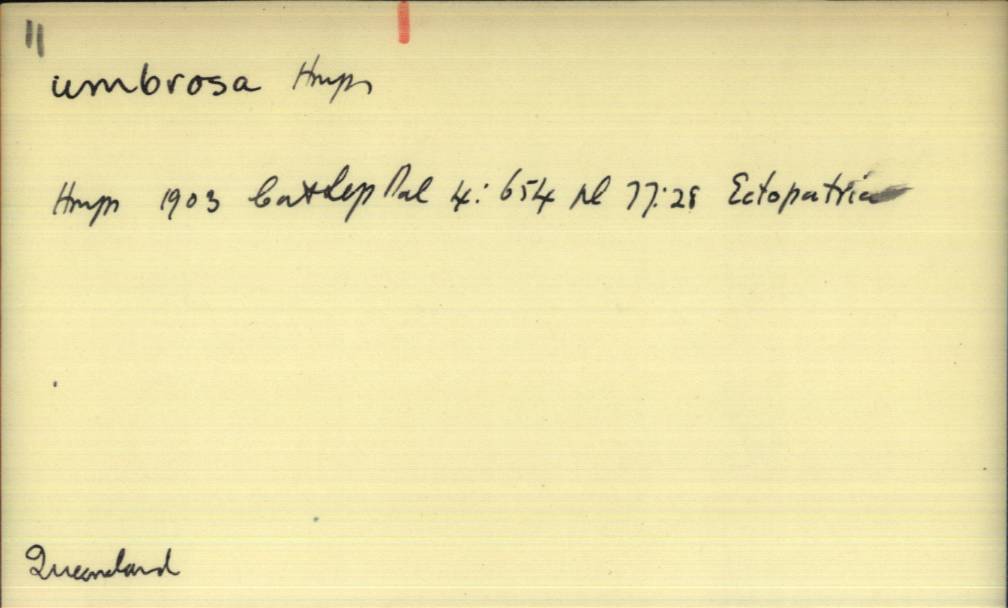 umbrosa Hmps
Hmps 1903 Cat Lep Phal 4: 654 pl 77:28 Ectopatria
Queensland